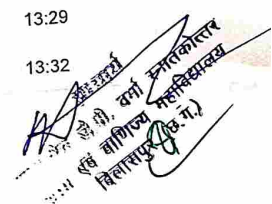 13:29
13:32
प्राचार्य
जे.पी. वर्मा स्नातकोत्तर
एवं वाणिज्य महाविद्यालय
बिलासपुर (छ.ग.)